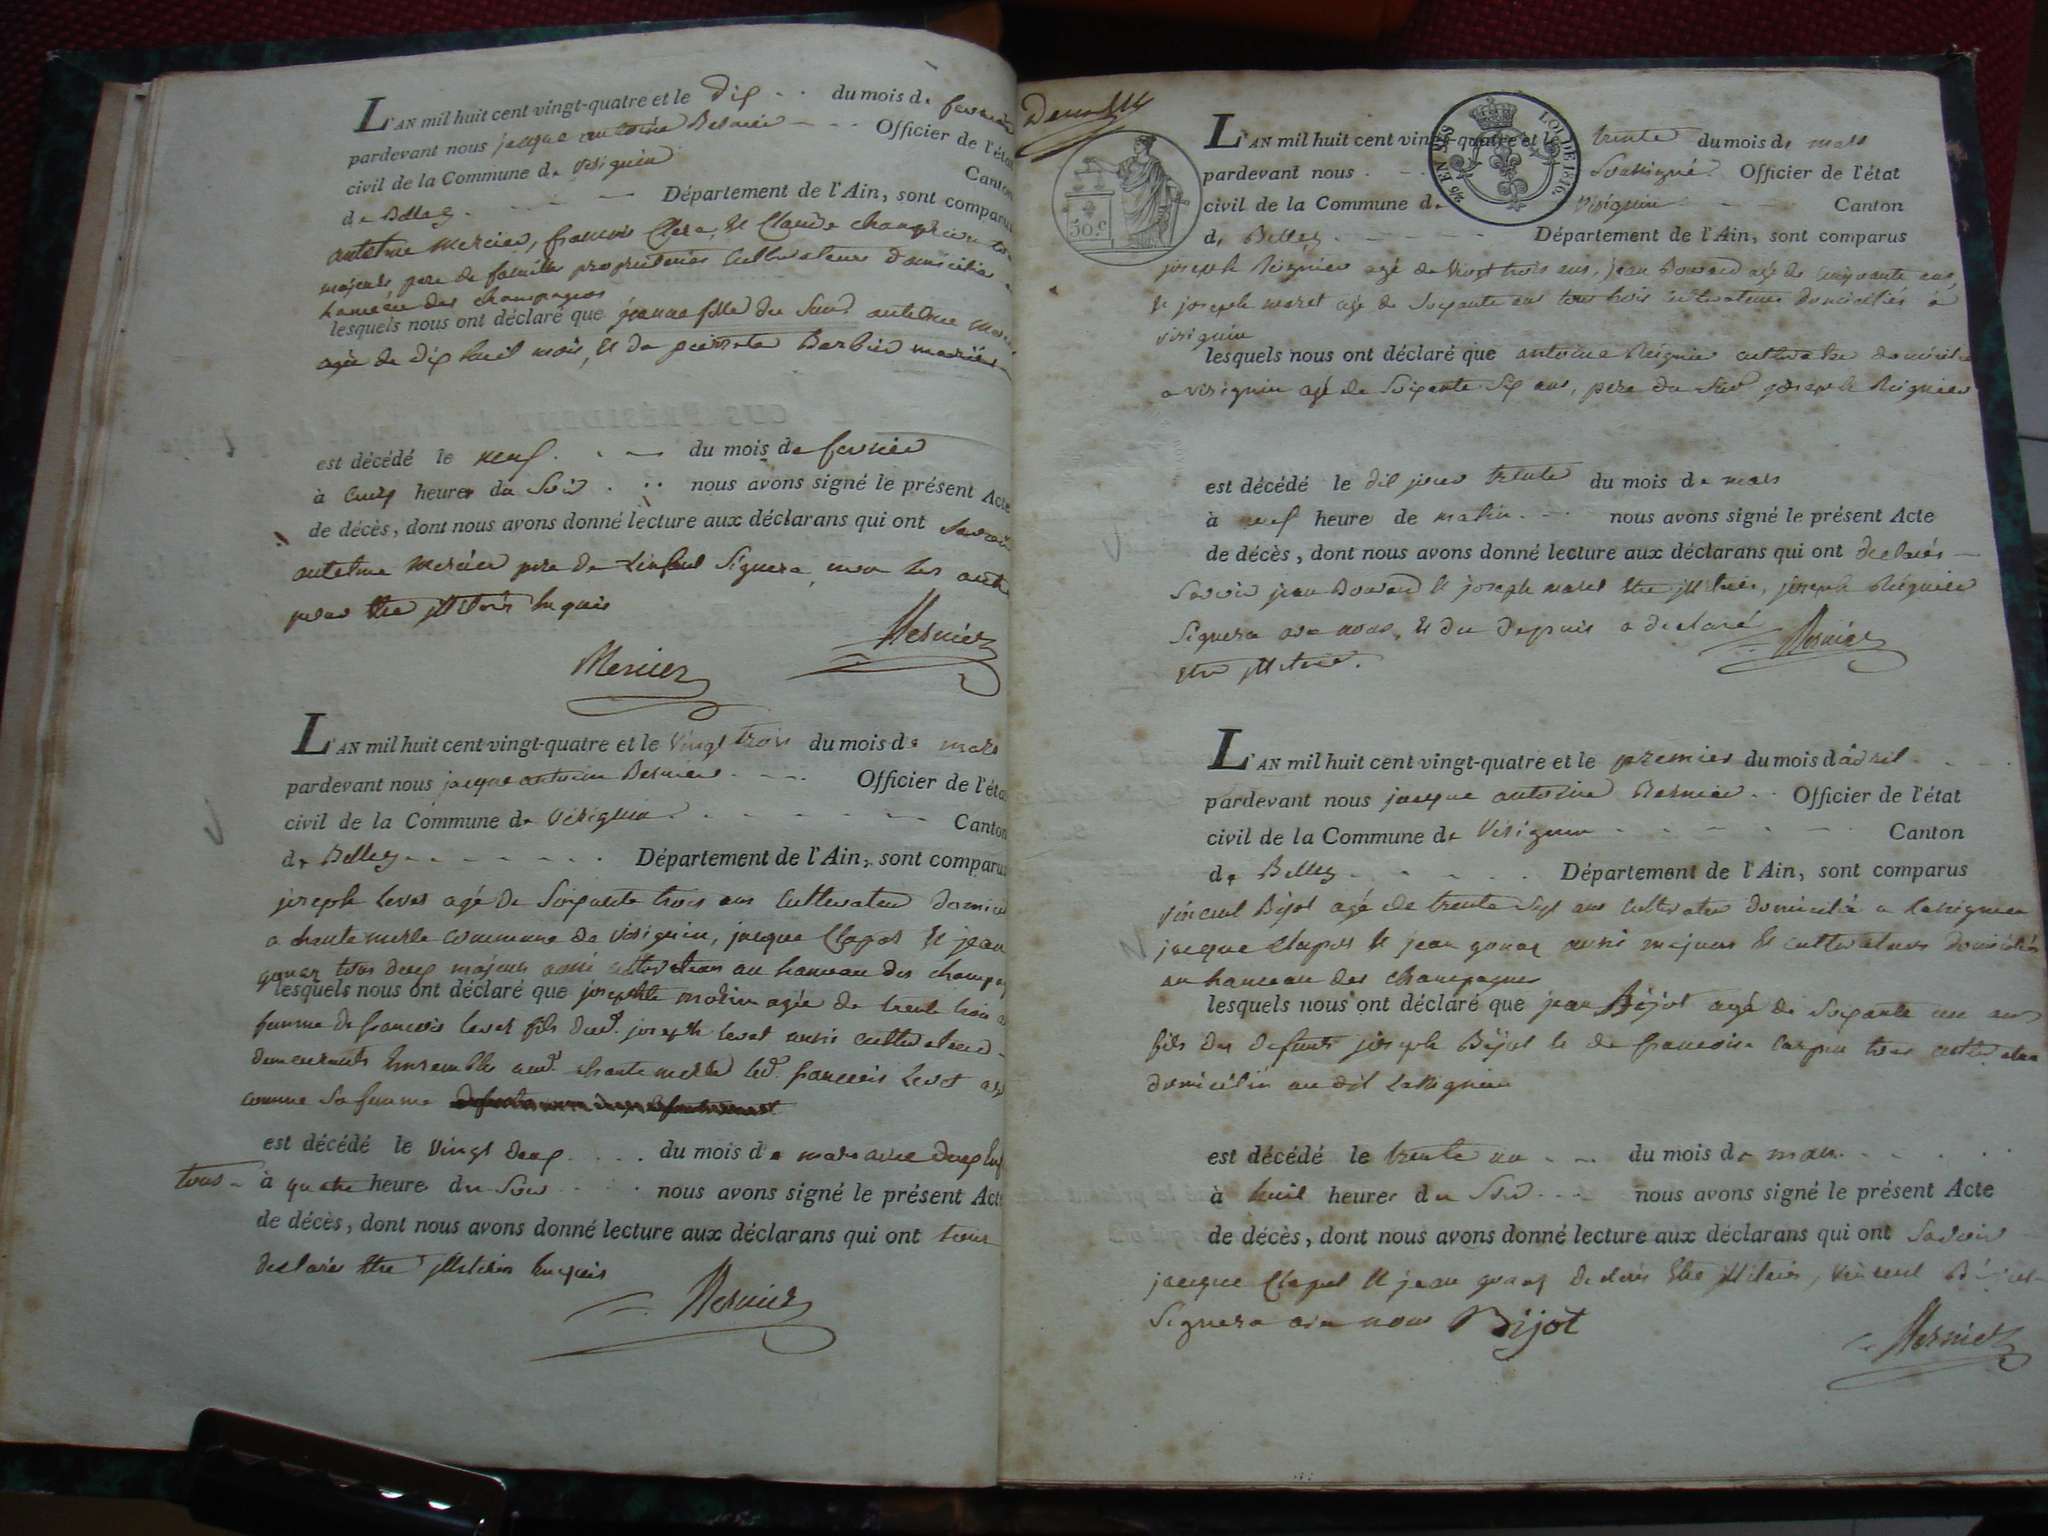 L'AN mil huit cent vingt-quatre et le dix du mois de fevrier
pardevant nous jacque antoine Bernier Officier de l'état
civil de la Commune de Virignin Canton
de Belley Département de l'Ain, sont comparus
antelme Mercier, francois Clerc, et Claude
majeurs, pere de famille proprietaires Cultivateurs domiciliés
hameau des champagnes
lesquels nous ont déclaré que jeanne fille du Sud. antelme
agée de dix huit mois, et de pierrette Barbier mariés
est décédé le neuf du mois de fevrier
à cinq heures du Soir nous avons signé le présent Acte
de décès, dont nous avons donné lecture aux déclarans qui ont Savoir
antelme Mercier pere de Lenfant Signera, non les autres
pour etre illiterés Enquis
Bernier
Mercier
L'AN mil huit cent vingt-quatre et le vingt trois du mois de mars
pardevant nous jacque antoine Bernier Officier de l'état
civil de la Commune de Virignin Canton
de Belley Département de l'Ain, sont comparus
joseph Levet agé de Soixante trois ans Cultivateur
a chantemerle commune de Virignin, jacque Clapot et jean
gonar tous deux majeurs aussi cultivateurs au hameau des
lesquels nous ont déclaré que josephte agée de trente trois
femme de francois Levet fils dud. joseph Levet aussi cultivateur
demeurants Ensembles aud. chantemerle led. francois Levet
comme Sa femme
est décédé le vingt deux du mois de mars
à quatre heures du Soir nous avons signé le présent Acte
de décès, dont nous avons donné lecture aux déclarans qui ont tous
declarés etre illiterés Enquis
Bernier
50.c
LOI DE 1816
L'AN mil huit cent vingt-quatre et le trente du mois de mars
pardevant nous Soussigné Officier de l'état
civil de la Commune de Virignin Canton
de Belley Département de l'Ain, sont comparus
joseph Reignier agé de vingt trois ans, jean agé de Cinquante ans,
et joseph moret agé de Soixante ans tous trois cultivateurs domiciliés à
virignin
lesquels nous ont déclaré que antoine Reignier cultivateur domicilié
a virignin agé de Soixante Six ans, pere du Sud. joseph Reignier
est décédé le dit jour trente du mois de mars
à neuf heure de matin nous avons signé le présent Acte
de décès, dont nous avons donné lecture aux déclarans qui ont declarés
Savoir jean et joseph moret etre illiterés, joseph Reignier
Signera avec nous, et du depuis a declaré
etre illiteré.
Bernier
L'AN mil huit cent vingt-quatre et le premier du mois d'avril
pardevant nous jacque antoine Bernier Officier de l'état
civil de la Commune de Virignin Canton
de Belley Département de l'Ain, sont comparus
vincent Bijot agé de trente Sept ans Cultivateur domicilié a Lassignieu
jacque Clapot et jean gonar aussi majeurs et cultivateurs domiciliés
au hameau des champagnes
lesquels nous ont déclaré que jean Bijot agé de Soixante un ans
fils des defunts joseph Bijot et de francoise tous cultivateurs
domicilié au dit Lassignieu
est décédé le trente un du mois de mars
à huit heures du Soir nous avons signé le présent Acte
de décès, dont nous avons donné lecture aux déclarans qui ont Savoir
jacque Clapot et jean gonar declarés etre illiterés, vincent Bijot
Signera avec nous Bijot
Bernier